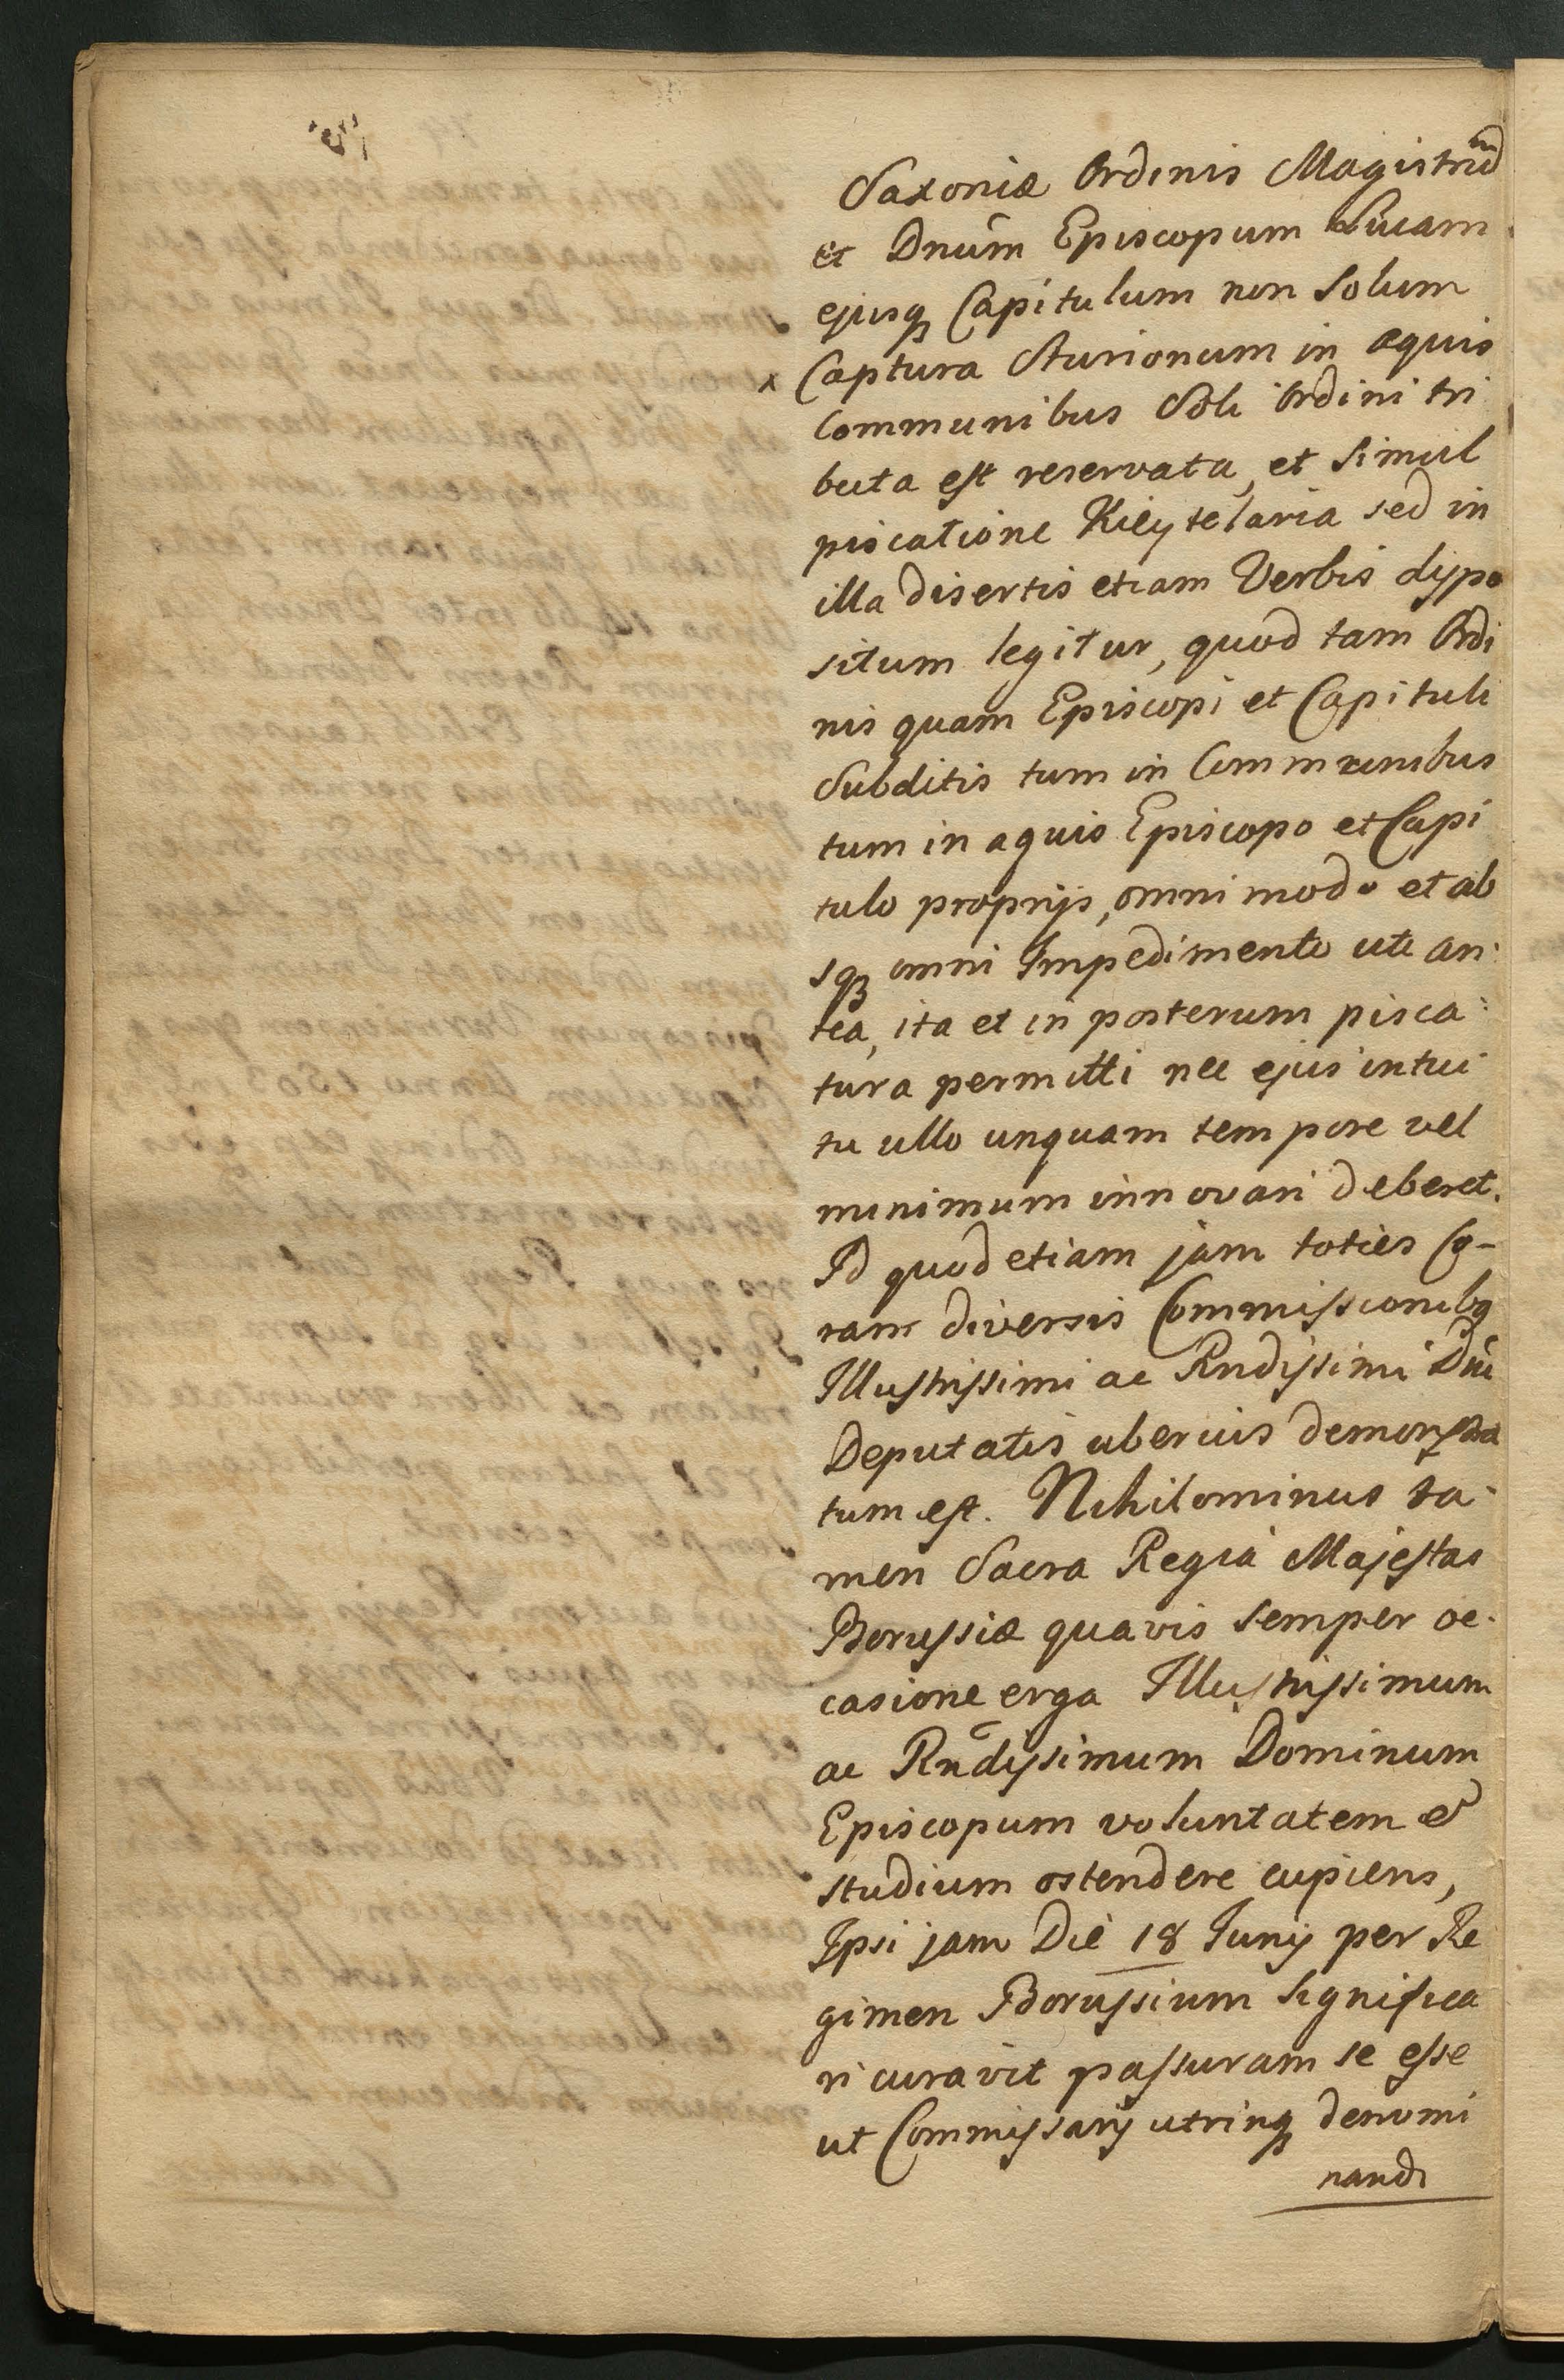 Saxoniæ Ordinis Magistrũ
et Dnūm Episcopum Lucam
ejusq Capitulum non Solum
x Captura Sturionum in aquis
Communibus Soli Ordini tri
buta est reservata, et Simul
piscatione Kieytelaria sed in
illa disertis etiam Verbis dispo
situm legitur, quod tam Ordi
nis quam Episcopi et Capituli
Subditis tum in Communibus
tum in aquis Episcopo et Capi
tulo proprijs, omni modo et ab
sq omni Impedimento uti an:
tea, ita et in posterum pisca:
tura permitti nec ejus intui
tu ullo unquam tempore vel
minimum innovari deberet.
Id quod etiam jam toties Co-
ram diversis Commissionibq
Illustrissimi ac Rndissimi Dni
Deputatis uberius demonstra
tum est. Nihilominus ta-
men Sacra Regia Majestas
Borussiæ quavis semper oc-
casione erga Illustrissimum
ac Rn̄dissimum Dominum
Episcopum voluntatem et
studium ostendere cupiens,
Ipsi jam Die 18 Junij per Re
gimen Borussium significa
ri curavit passuram se esse
ut Commissarij utrinq denomi
nandi